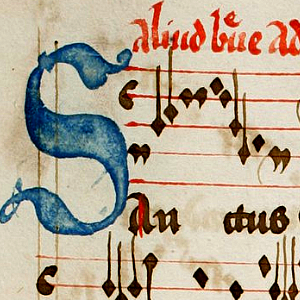 aliud bñe ad
San ctus